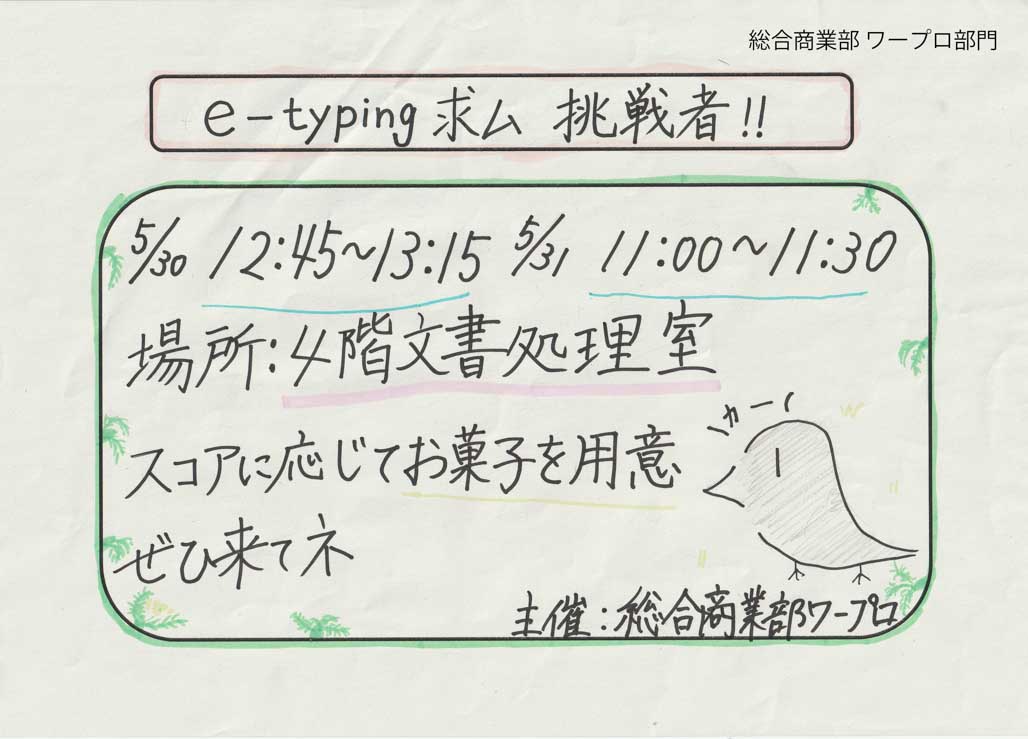 総合商業部 ワープロ部門
e-typing 求ム 挑戦者!!
5/30 12:45~13:15 5/31 11:00~11:30
場所:4階文書処理室
スコアに応じてお菓子を用意
カー
ぜひ来てネ
主催:総合商業部ワープロ